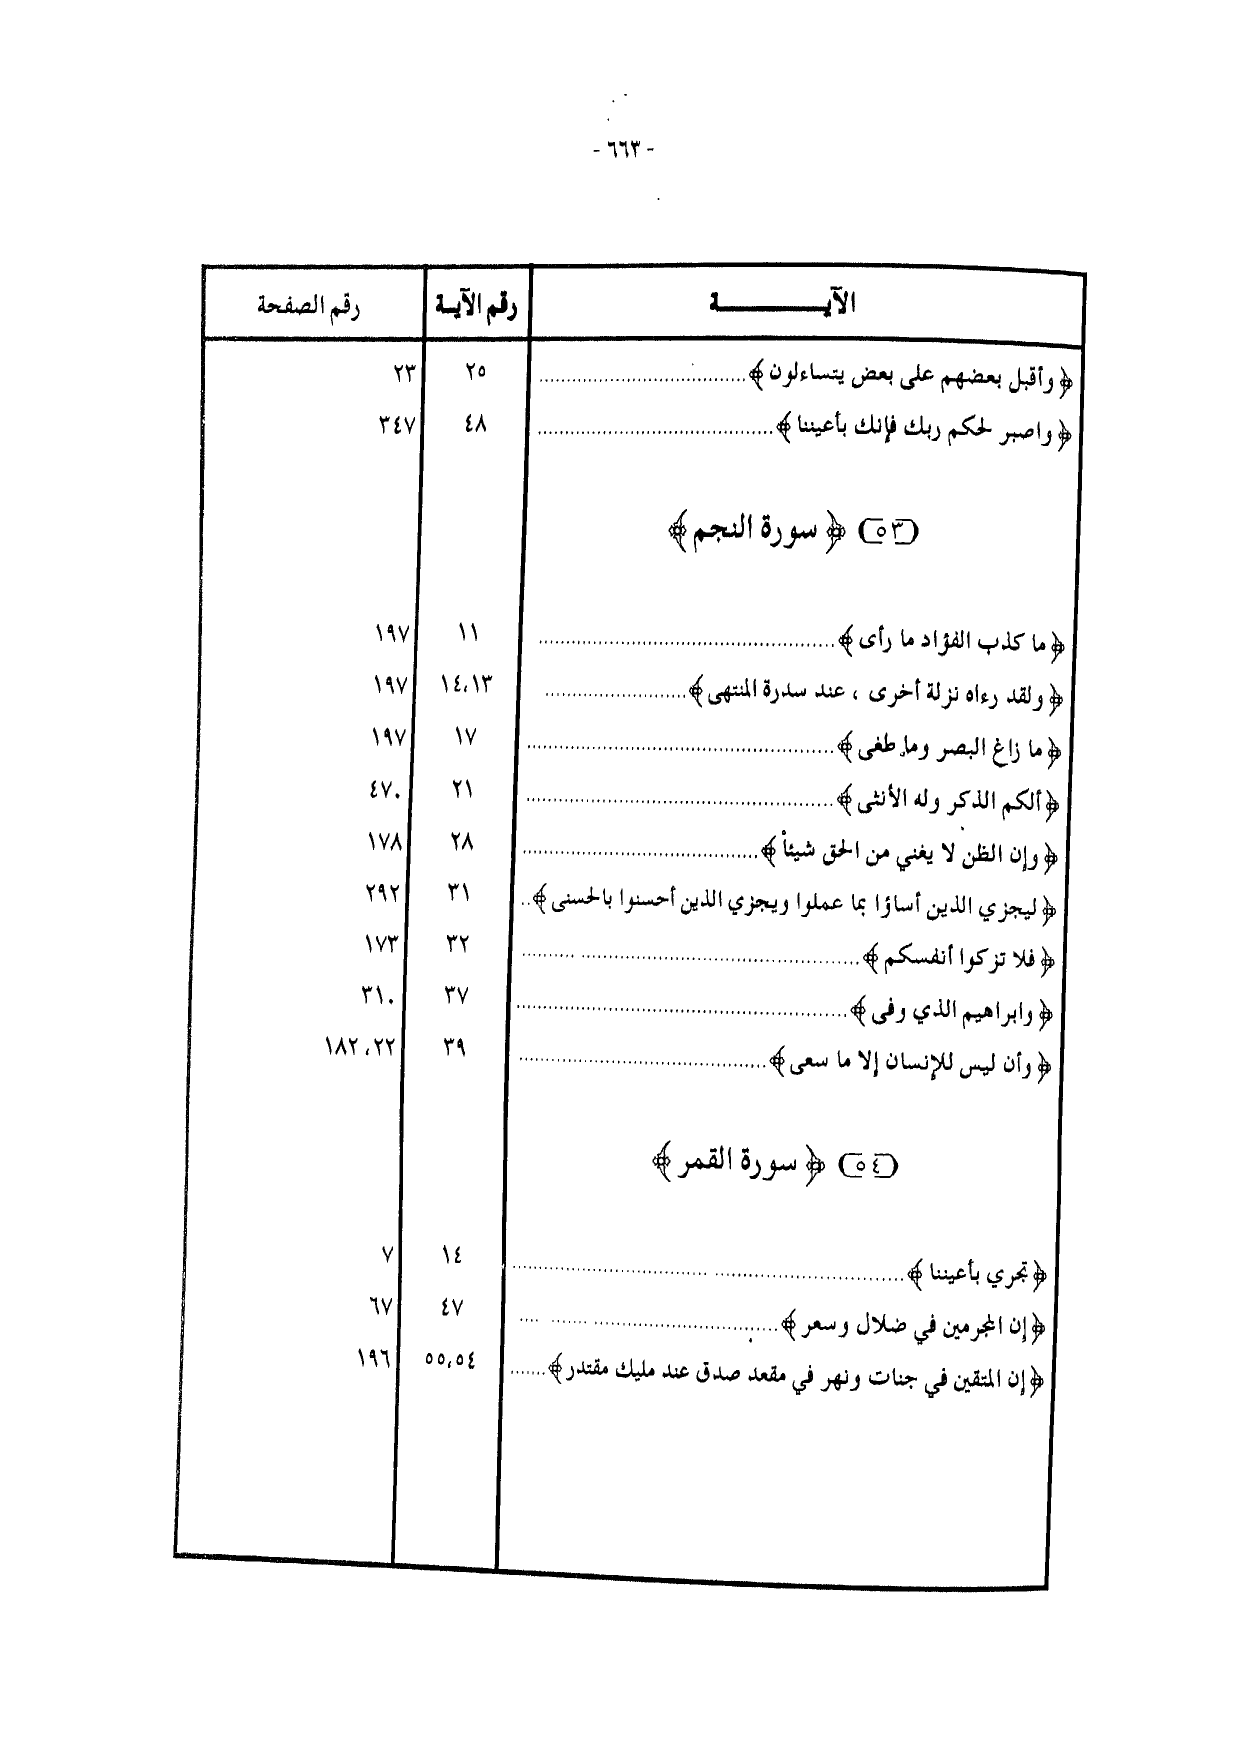 - ٦٦٣ -
الآيـــــــــــة رقم الآيـة رقم الصفحة
﴿ وأقبل بعضهم على بعض يتساءلون ﴾ ........ ٢٥ ٢٣
﴿ واصبر لحكم ربك فإنك بأعيننا ﴾ ........ ٤٨ ٣٤٧
(٥٣) ﴿ سورة النجم ﴾
﴿ ما كذب الفؤاد ما رأى ﴾ ........ ١١ ١٩٧
﴿ ولقد رءاه نزلة أخرى ، عند سدرة المنتهى ﴾ ........ ١٤،١٣ ١٩٧
﴿ ما زاغ البصر وما طغى ﴾ ........ ١٧ ١٩٧
﴿ ألكم الذكر وله الأنثى ﴾ ........ ٢١ ٤٧٠
﴿ وإن الظن لا يغني من الحق شيئاً ﴾ ........ ٢٨ ١٧٨
﴿ ليجزي الذين أساؤا بما عملوا ويجزي الذين أحسنوا بالحسنى ﴾ .. ٣١ ٢٩٢
﴿ فلا تزكوا أنفسكم ﴾ ........ ٣٢ ١٧٣
﴿ وابراهيم الذي وفى ﴾ ........ ٣٧ ٣١٠
﴿ وأن ليس للإنسان إلا ما سعى ﴾ ........ ٣٩ ١٨٢،٢٢
(٥٤) ﴿ سورة القمر ﴾
﴿ تجري بأعيننا ﴾ ........ ١٤ ٧
﴿ إن المجرمين في ضلال وسعر ﴾ ........ ٤٧ ٦٧
﴿ إن المتقين في جنات ونهر في مقعد صدق عند مليك مقتدر ﴾ ....... ٥٥،٥٤ ١٩٦